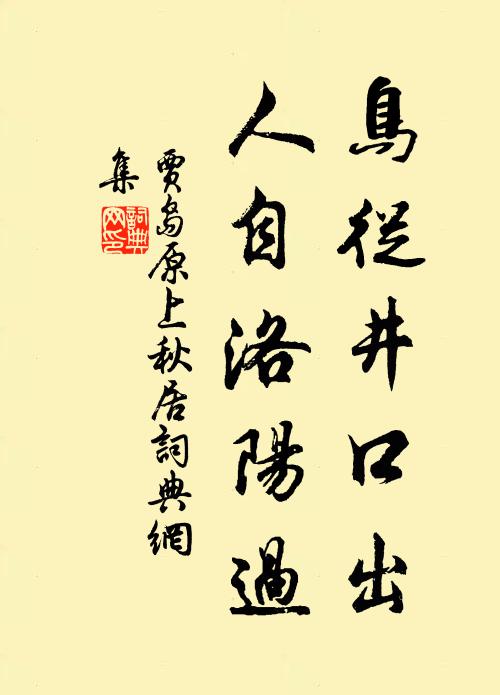 鳥從井口出
人自洛陽過
賈島原上秋居詞典網
集
詞典
网印